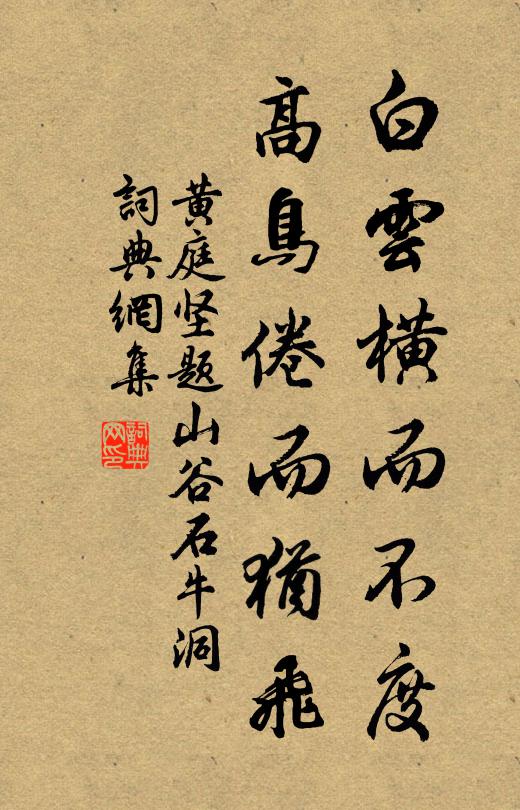 白雲橫而不度
高鳥倦而猶飛
黄庭坚题山谷石牛洞
詞典網集
詞典网印